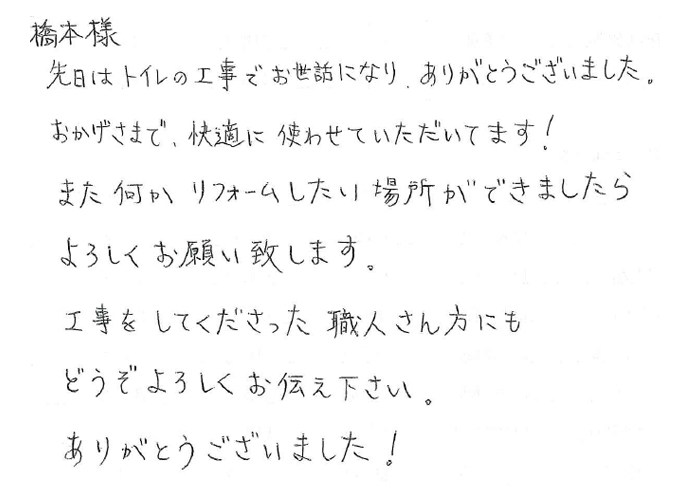 橋本様
先日はトイレの工事でお世話になり、ありがとうございました。
おかげさまで、快適に使わせていただいてます！
また何かリフォームしたい場所ができましたら
よろしくお願い致します。
工事をしてくださった職人さん方にも
どうぞよろしくお伝え下さい。
ありがとうございました！